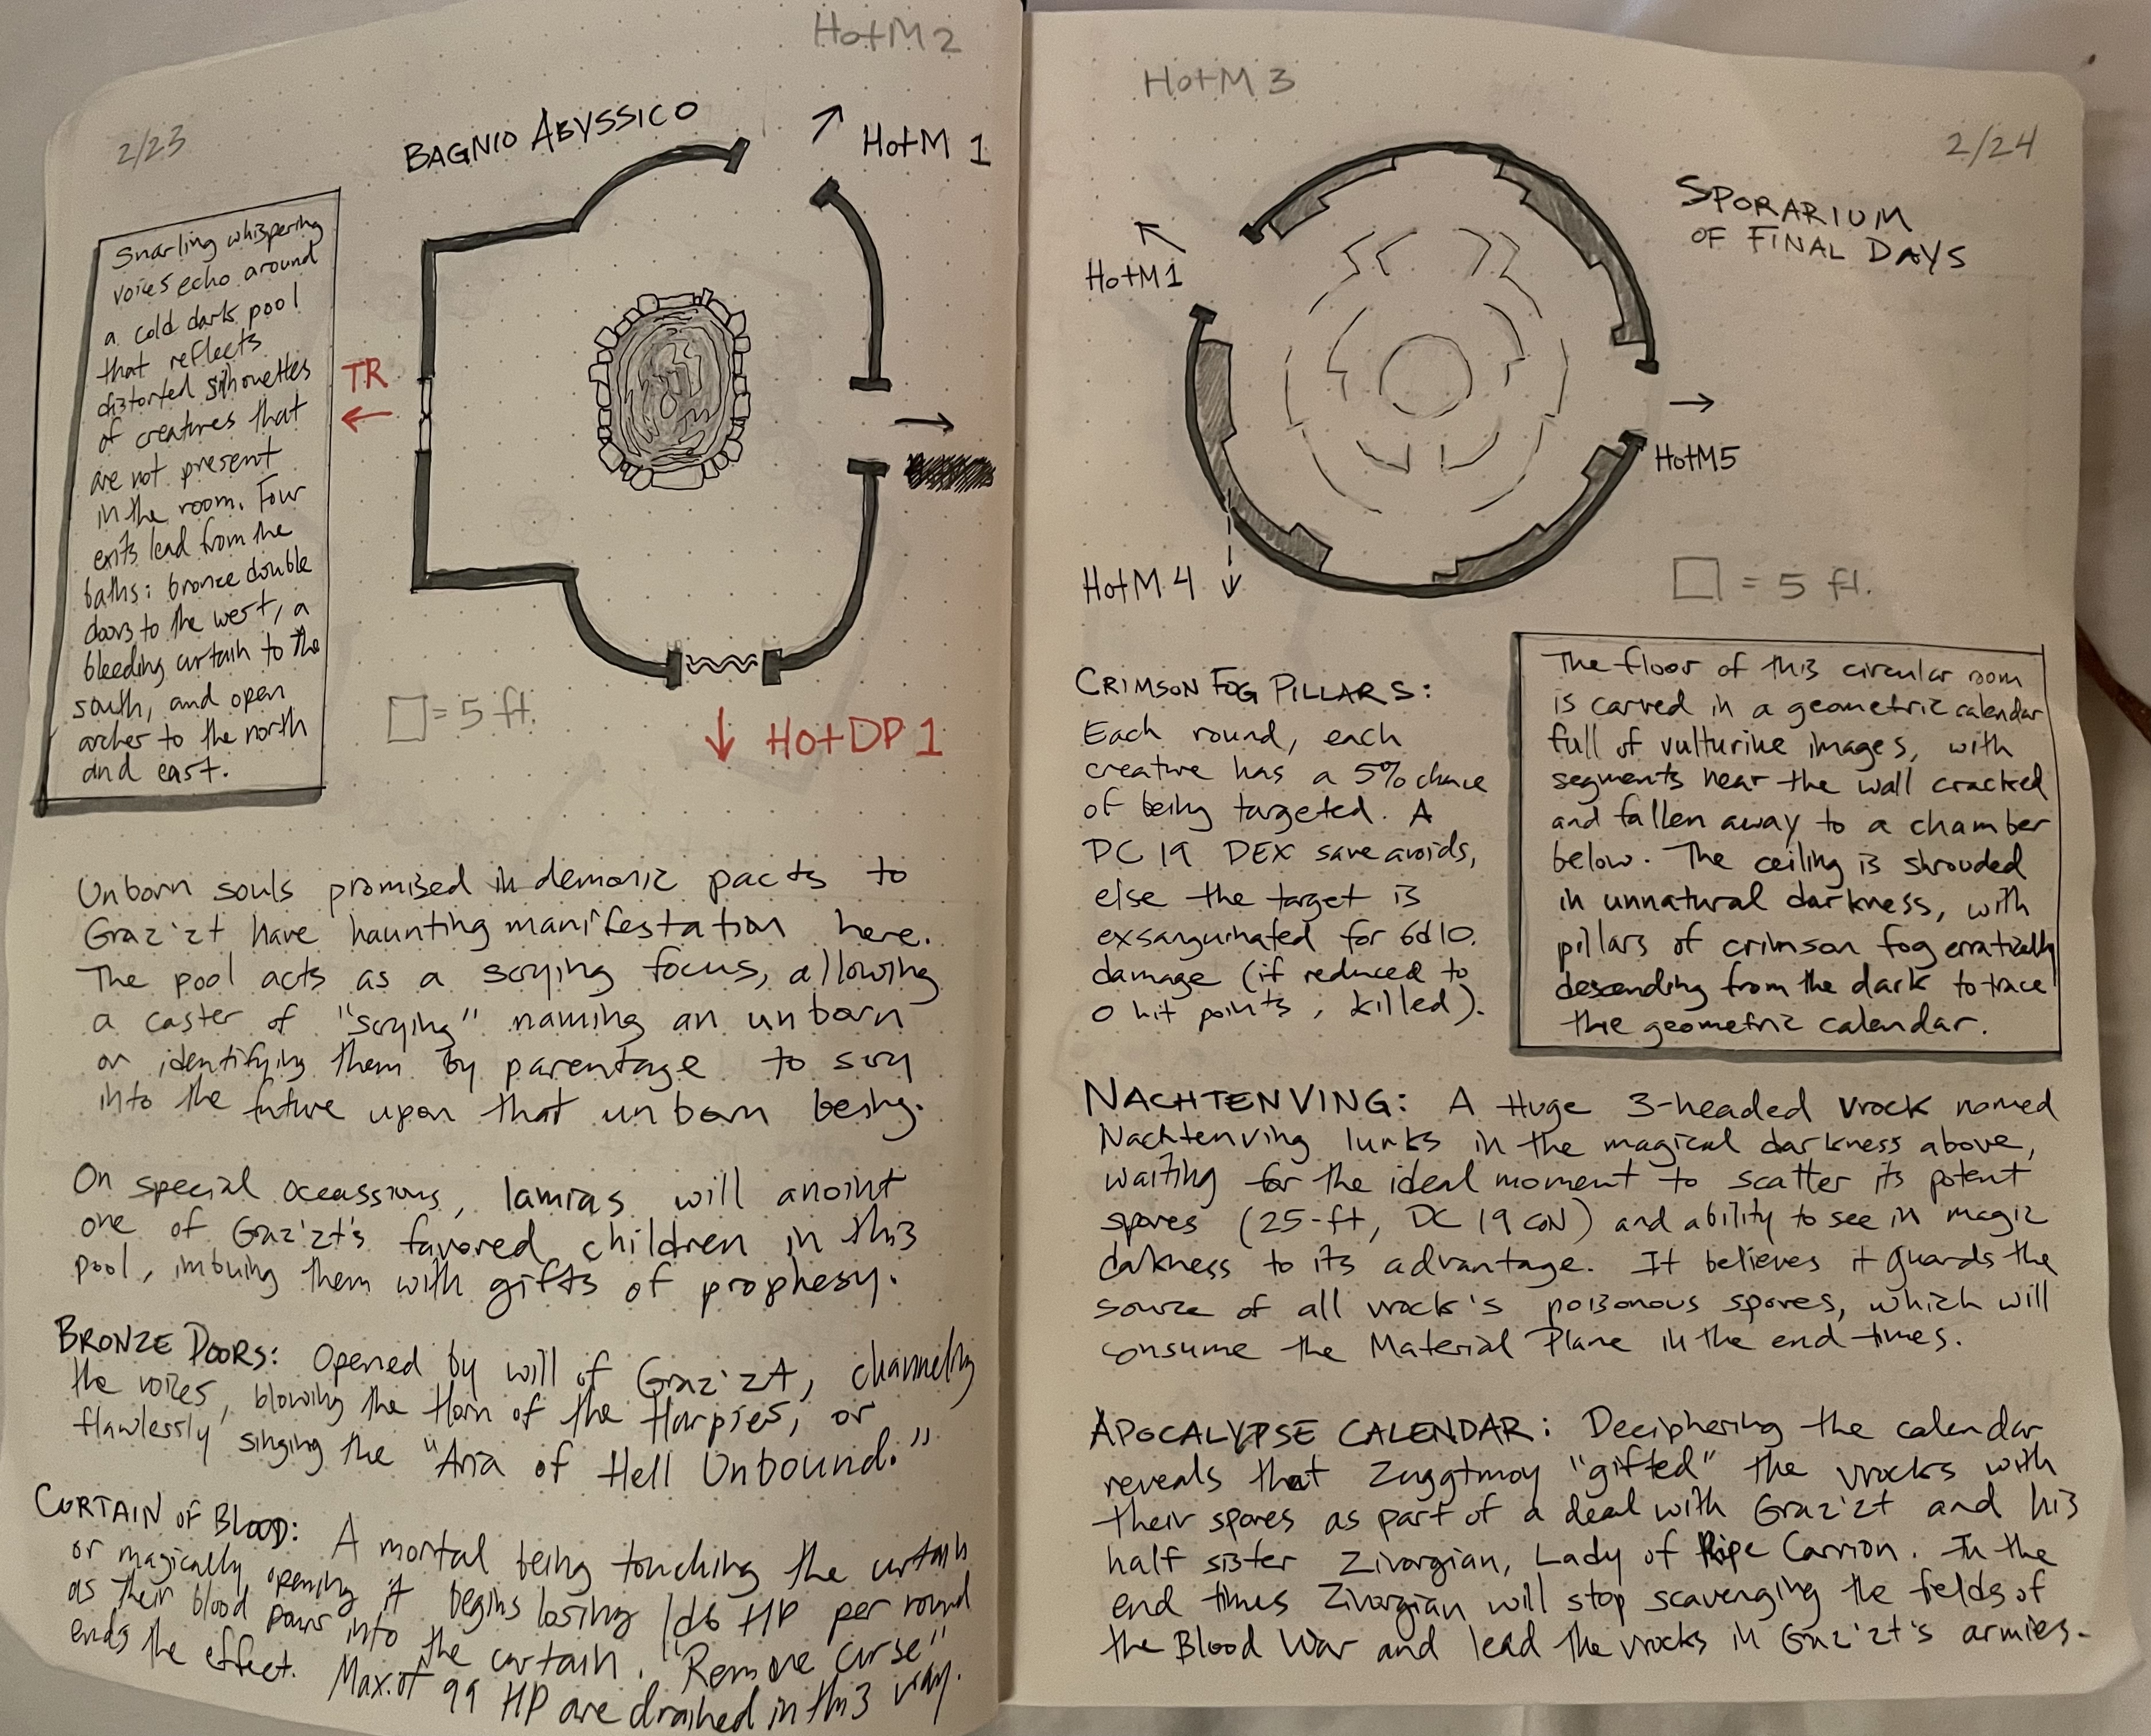 HotM2
2/23
BAGNIO ABYSSICO
HotM 1
Snarling whispering
voices echo around
a cold dark pool
that reflects
distorted silhouettes
of creatures that
are not present
in the room. Four
exits lead from the
baths: bronze double
doors to the west, a
bleeding curtain to the
south, and open
arches to the north
and east.
TR
= 5 ft.
HotDP 1
Unborn souls promised in demonic pacts to
Graz'zt have haunting manifestation here.
The pool acts as a scrying focus, allowing
a caster of "scrying" naming an unborn
or identifying them by parentage to scry
into the future upon that unborn being.
On special ocassions, lamias will anoint
one of Graz'zt's favored children in this
pool, imbuing them with gifts of prophesy.
BRONZE DOORS: Opened by will of Graz'zt, channeling
the voices, blowing the Horn of the Harpies, or
flawlessly singing the "Aria of Hell Unbound."
CURTAIN OF BLOOD: A mortal being touching the curtain
or magically opening it begins losing 1d6 HP per round
as their blood pours into the curtain. "Remove Curse"
ends the effect. Max. of 99 HP are drained in this way.
HotM 3
2/24
SPORARIUM
OF FINAL DAYS
HotM1
HotM5
HotM 4
= 5 ft.
CRIMSON FOG PILLARS:
Each round, each
creature has a 5% chance
of being targeted. A
DC 19 DEX save avoids,
else the target is
exsanguinated for 6d10
damage (if reduced to
0 hit points, killed).
The floor of this circular room
is carved in a geometric calendar
full of vulturine images, with
segments near the wall cracked
and fallen away to a chamber
below. The ceiling is shrouded
in unnatural darkness, with
pillars of crimson fog erratically
descending from the dark to trace
the geometric calendar.
NACHTENVING: A Huge 3-headed vrock named
Nachtenving lurks in the magical darkness above,
waiting for the ideal moment to scatter its potent
spores (25-ft, DC 19 CON) and ability to see in magic
darkness to its advantage. It believes it guards the
source of all vrock's poisonous spores, which will
consume the Material Plane in the end-times.
APOCALYPSE CALENDAR: Deciphering the calendar
reveals that Zuggtmoy "gifted" the vrocks with
their spores as part of a deal with Graz'zt and his
half sister Zivorgian, Lady of Ripe Carrion. In the
end times Zivorgian will stop scavenging the fields of
the Blood War and lead the vrocks in Graz'zt's armies.